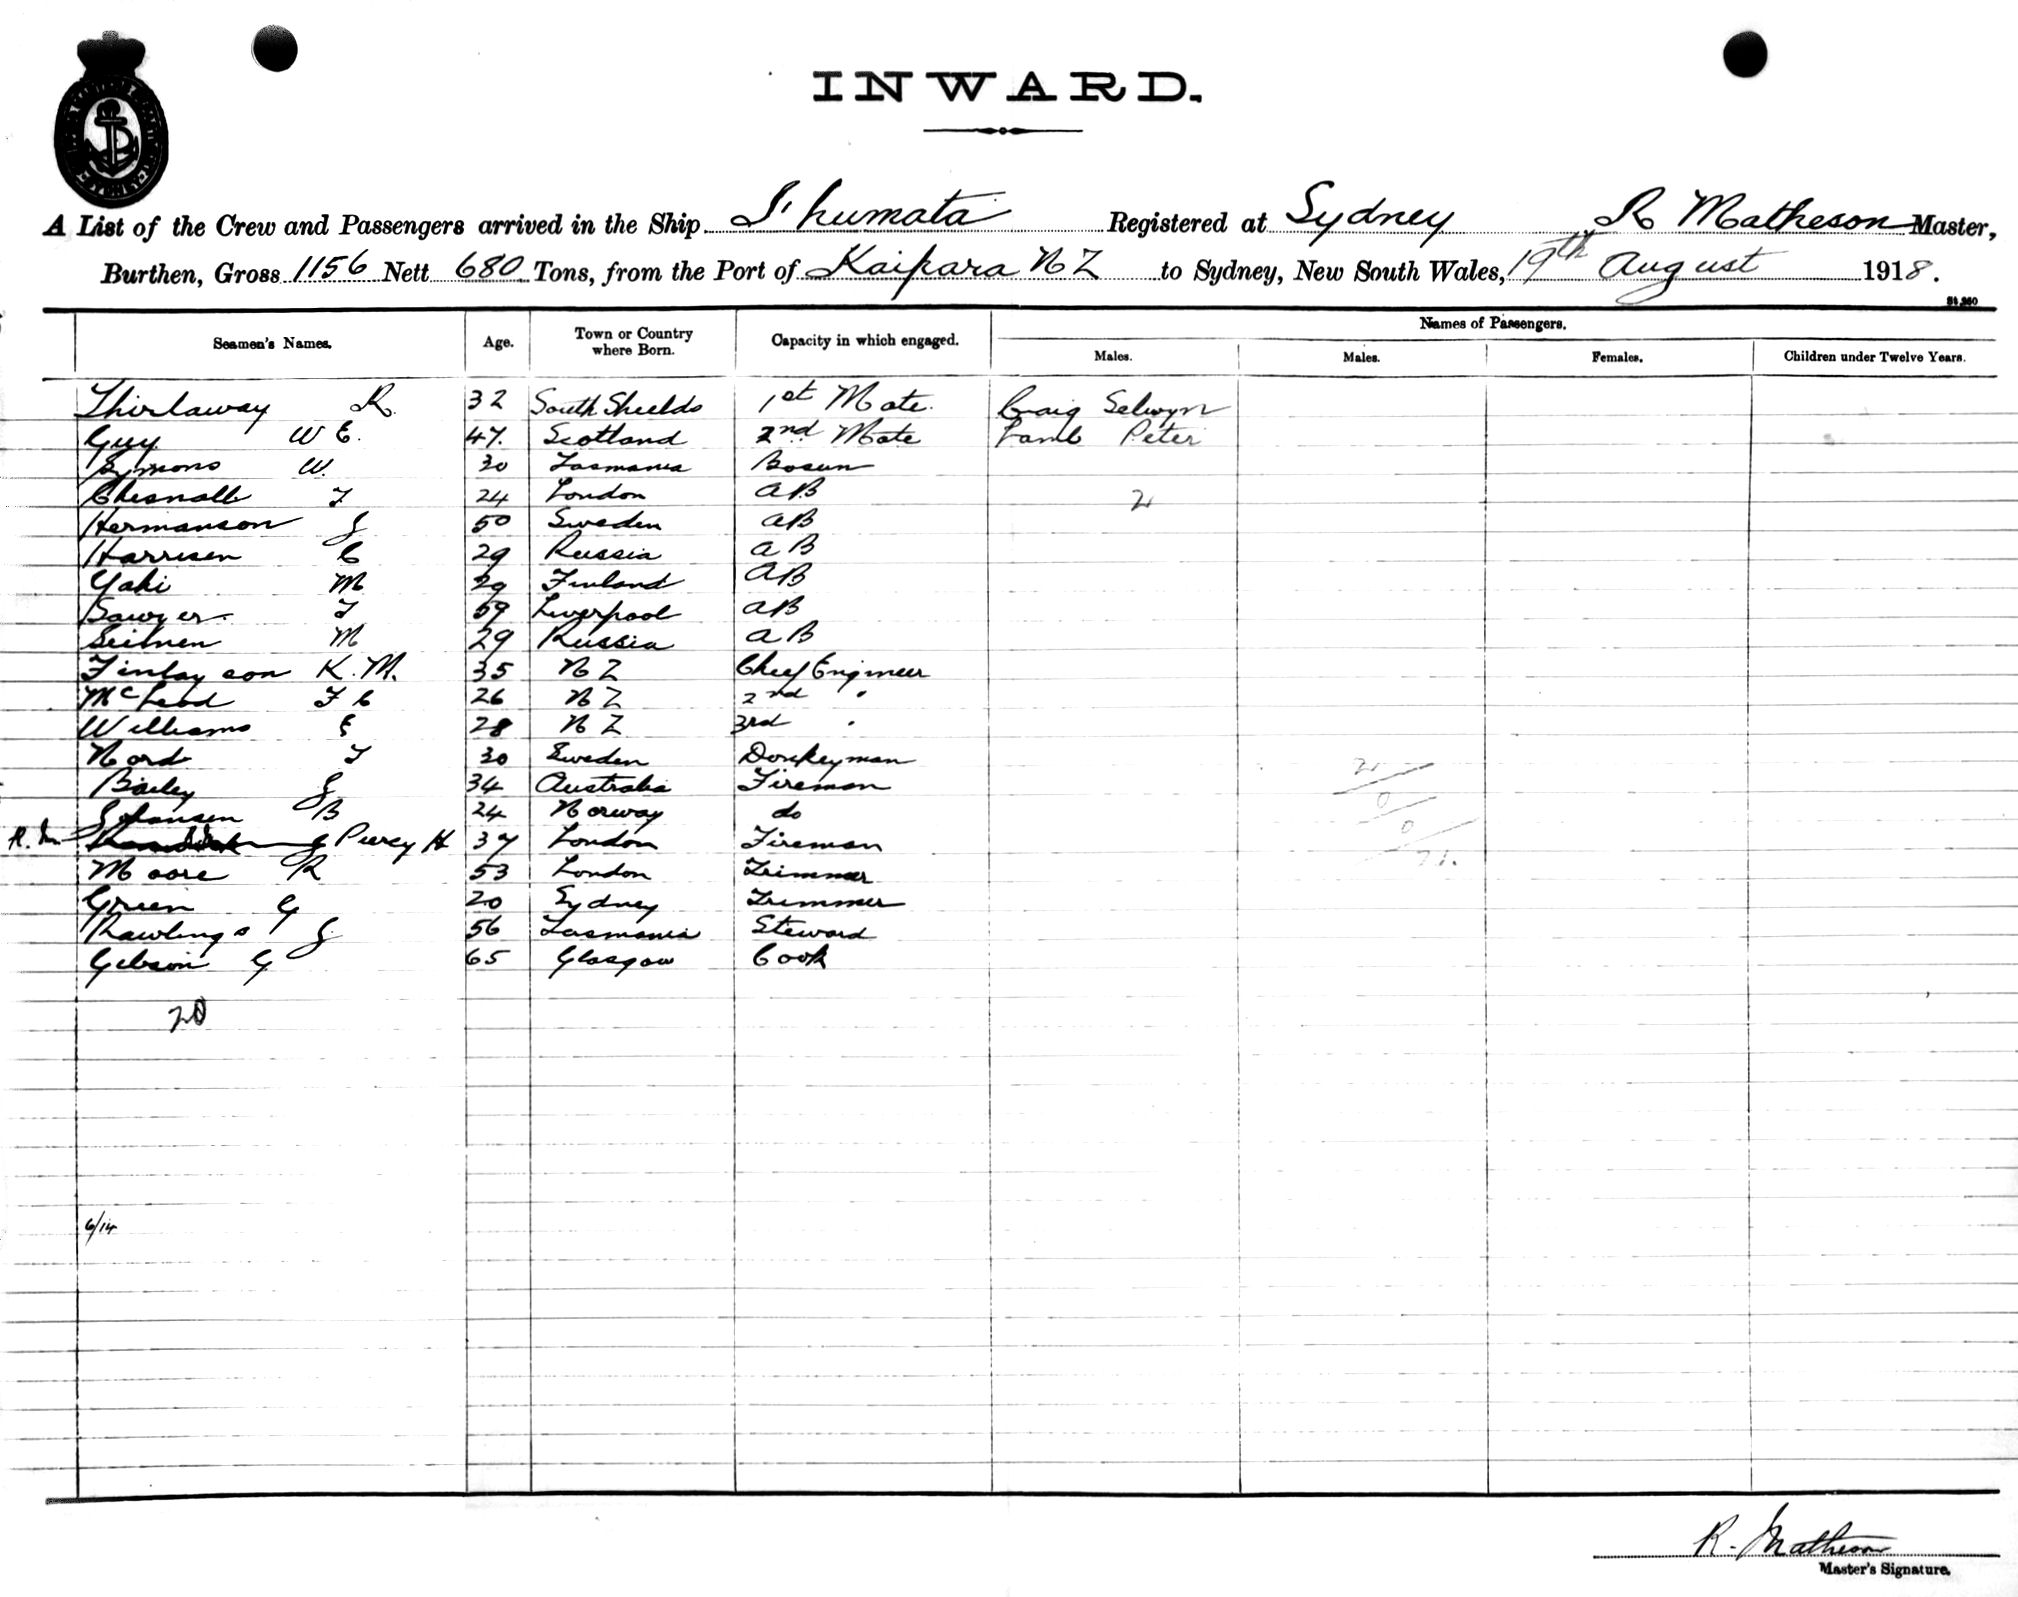 INWARD.
A List of the Crew and Passengers arrived in the Ship Ihumata Registered at Sydney R Matheson Master,
Burthen, Gross 1156 Nett 680 Tons, from the Port of Kaipara N Z to Sydney, New South Wales, 19th August 1918.
Seamen's Names. Age. Town or Country where Born. Capacity in which engaged. Names of Passengers.
Males. Males. Females. Children under Twelve Years.
Thirlaway R. 32 South Shields 1st Mate. Craig Selwyn
Guy W E. 47. Scotland 2nd Mate Lamb Peter
Symons W. 30 Tasmania Bosun
Chesnall F 24 London AB 2
Hermanson J 50 Sweden AB
Harrisen C 29 Russia AB
Yaki M 29 Finland AB
Sawyer F 59 Liverpool AB
M 29 Russia AB
Finlayson K. M. 35 N Z Chief Engineer
McLeod F C 26 N Z 2nd "
Williams E 28 N Z 3rd "
Nord F 30 Sweden Donkeyman
Bailey J 34 Australia Fireman
Johansen B 24 Norway do
R. M J Percy H 37 London Fireman
Moore R 53 London Trimmer
Green G 20 Sydney Trimmer
Rawlings J 56 Tasmania Steward
Gibson G 65 Glasgow Cook
20
6/14
R. Matheson
Master's Signature.